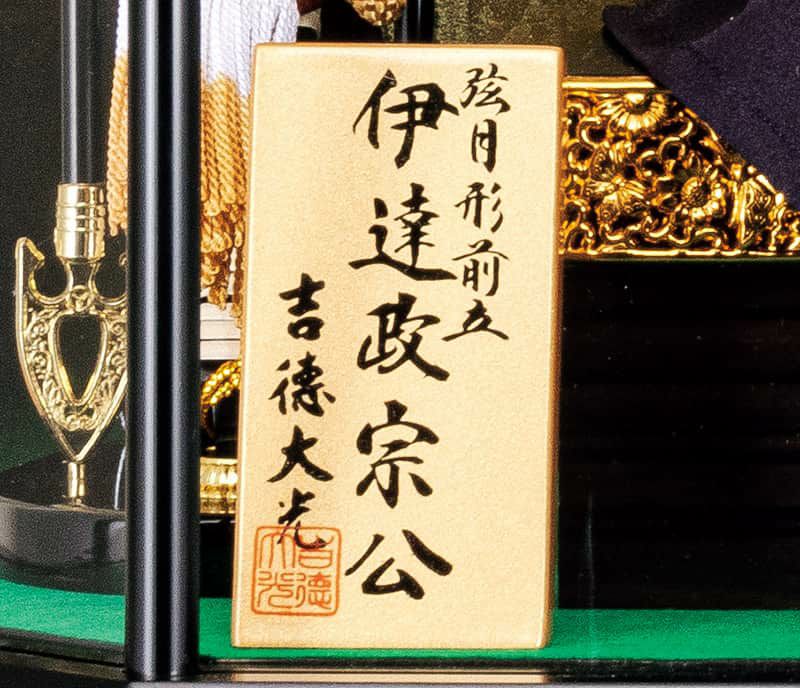 弦月形前立
伊達政宗公
吉德大光
吉德大光